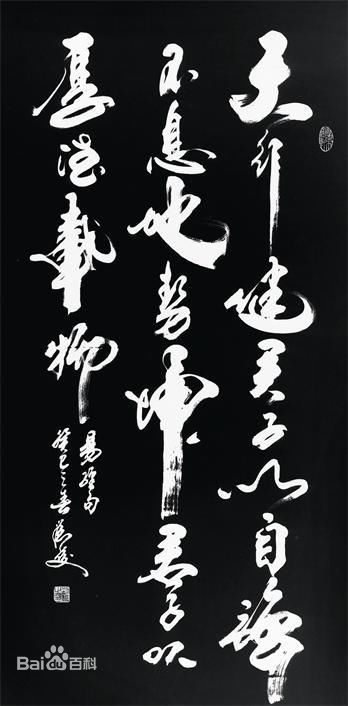 天行健君子以自強
不息地勢坤君子以
厚德載物
易經句
癸巳之春
Bai百科